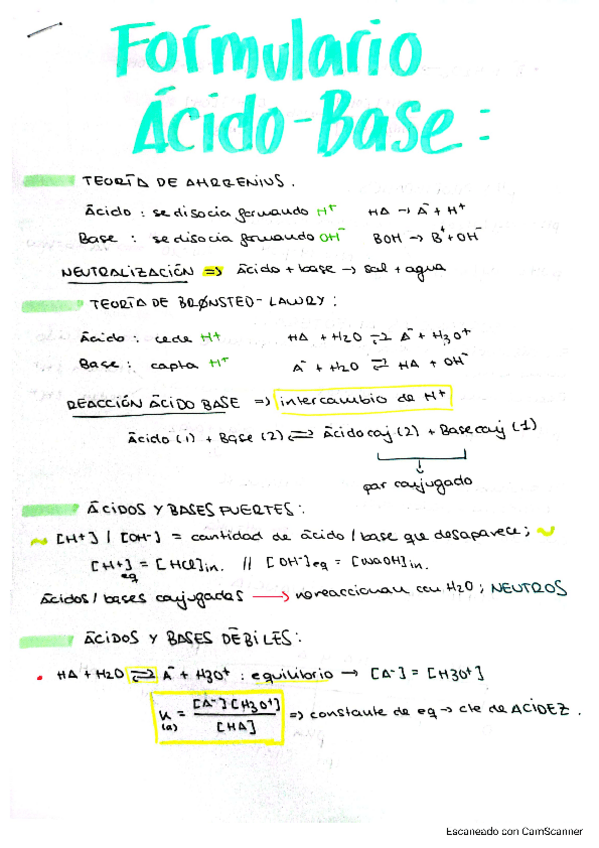 Formulario
Ácido-Base:
TEORÍA DE AHRGENIUS.
Ácido : se disocia formando H⁺ HA → A⁻ + H⁺
Base : se disocia formando OH⁻ BOH → B⁺ + OH⁻
NEUTRALIZACIÓN ⇒ ácido + base → sal + agua
TEORÍA DE BRØNSTED-LAWRY :
Ácido : cede H⁺ HA + H2O ⇄ A⁻ + H3O⁺
Base : capta H⁺ A⁻ + H2O ⇄ HA + OH⁻
REACCIÓN ÁCIDO BASE ⇒ intercambio de H⁺
Ácido (1) + Base (2) ⇄ Ácido conj (2) + Base conj (1)
par conjugado
ÁCIDOS Y BASES FUERTES :
~ [H+] / [OH-] = cantidad de ácido / base que desaparece ; ~
[H+]eq = [HCl]in. // [OH-]eq = [NaOH]in.
Ácidos / bases conjugadas → no reaccionan con H2O ; NEUTROS
ÁCIDOS Y BASES DÉBILES :
• HA + H2O ⇄ A⁻ + H3O⁺ : equilibrio → [A⁻] = [H3O⁺]
K(a) = [A⁻][H3O⁺] / [HA] ⇒ constante de eq → cte de ACIDEZ .
Escaneado con CamScanner